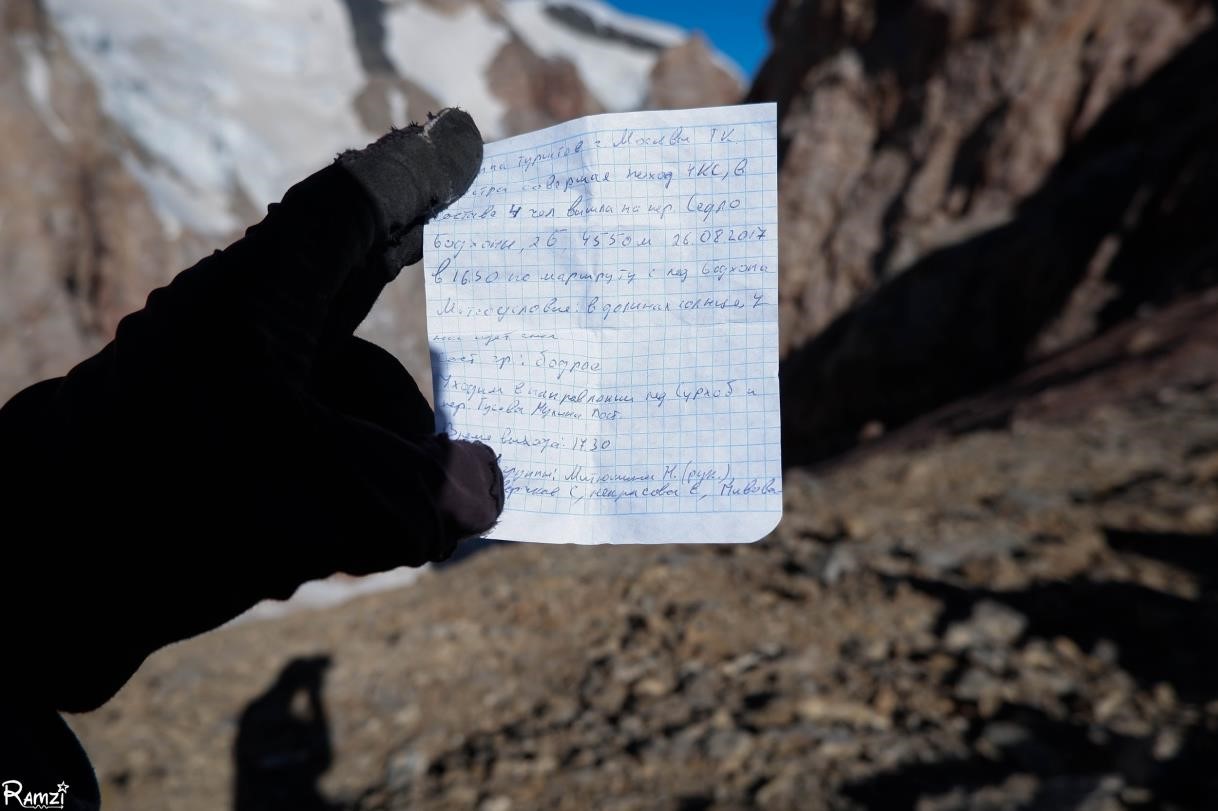 туристов г. Москвы ТК
совершая поход 4КС, в
составе 4 чел вышла на пер. Седло
Бодхоны, 2Б 4550м 26.08.2017
в 16.50 по маршруту с лед Бодхона
Метеоусловия: в долинах солнце, у
нас идёт снег
сост. гр.: бодрое
Уходим в направлении лед Сурхоб и
пер. Гусева Мухина Пост
Время выхода: 17.30
группы: Митюшина Н. (рук.),
С, Некрасова Е,
Ramzi